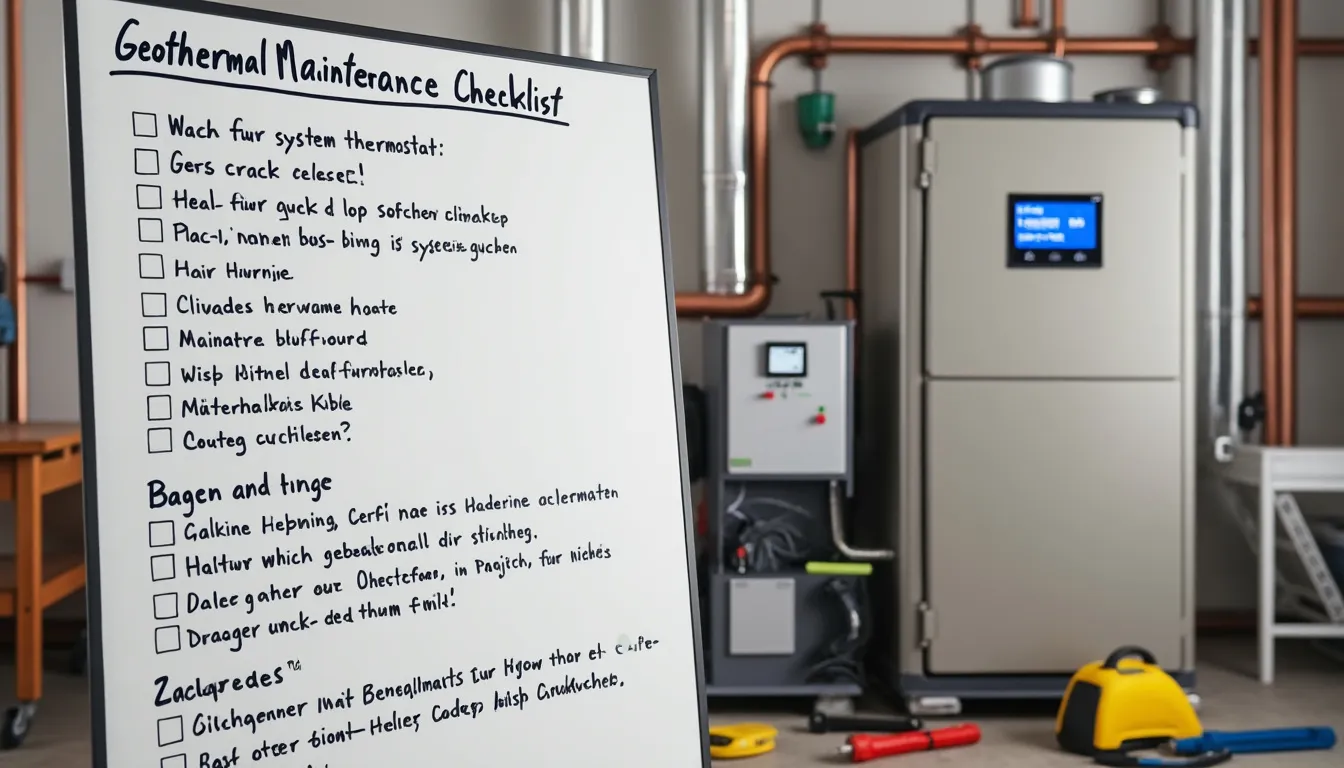 Geothermal Mainterance Checklist
Wach fur system thermostat:
Gers crack celesec!
Heal- fiur guck d lop sofcher climakep
Plac-l, nonen bus- bimg is syseeis guchen
Hair Hurnie.
Clivades herwame hoate
Mainatre bluffvourd
Wisp Hitnel deaf-furnotaslec,
Mäterhalksis Kible
Couteg cuchlesen?
Bagen and tinge
Galkine Hepning, Cerfi nae iss Haderine aclermaten
Haltwr which gebealconall dir stintheg.
Dalec gaher our Ohectefoas, in Pnajich, fur nichés
Draager unck- ded thum fmild!
Zaclqredes
Gilchgenner init Beneqllmarts Tur Hgow thor et
Bast otcer tiont- Helley Codep hisp Cnukluches.